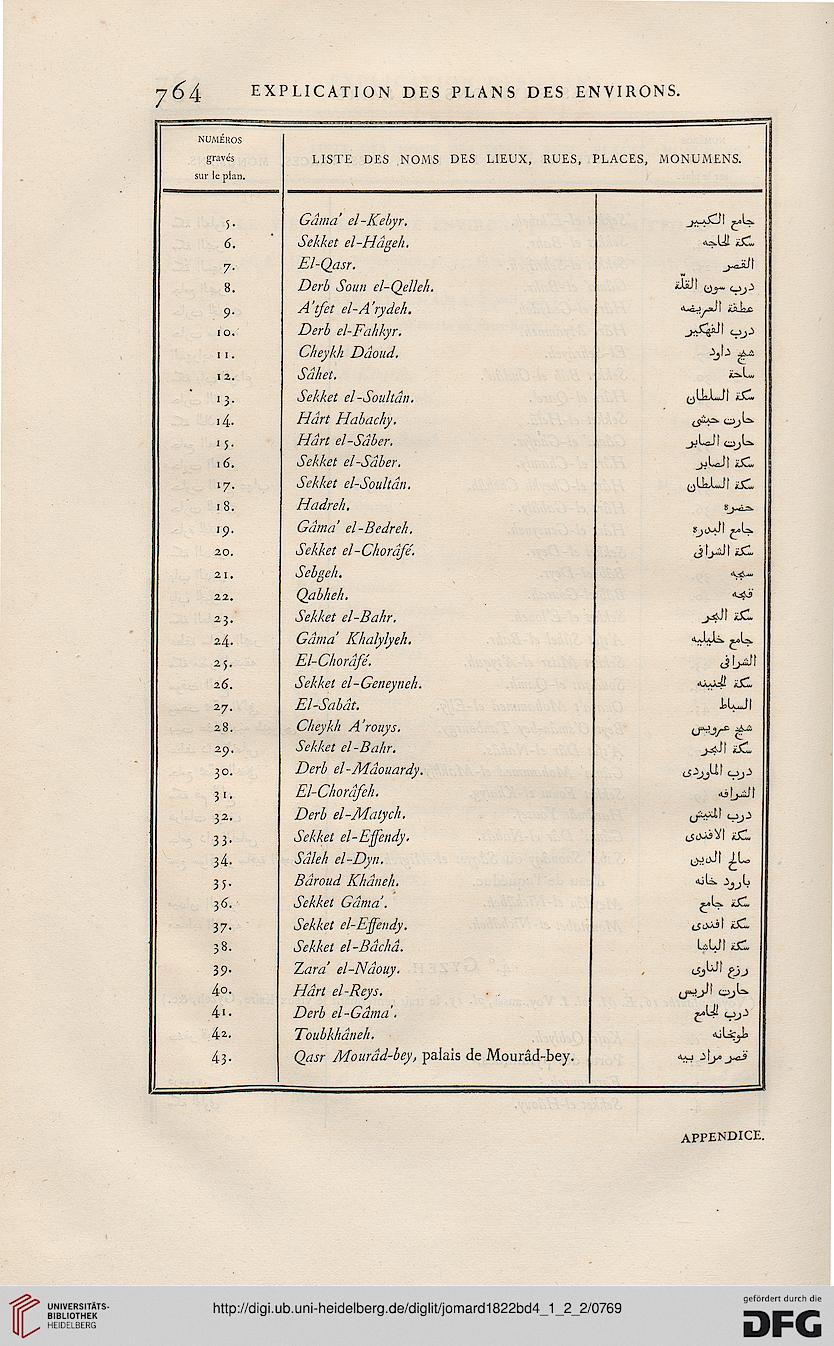 764 EXPLICATION DES PLANS DES ENVIRONS.
NUMÉROS
gravés
sur le plan.
LISTE DES NOMS DES LIEUX, RUES, PLACES, MONUMENS.
5. Gâma' el-Kebyr. جامع الكبير
6. Sekket el-Hâgeh. سكة الحاجه
7. El-Qasr. القصر
8. Derb Soun el-Qelleh. درب سون القلّة
9. A'tfet el-A'rydeh. عطفة العريضه
10. Derb el-Fahkyr. درب الفهكير
11. Cheykh Dâoud. شيخ داود
12. Sâhet. ساحة
13. Sekket el-Soultân. سكة السلطان
14. Hârt Habachy. حارت حبشى
15. Hârt el-Sâber. حارت الصابر
16. Sekket el-Sâber. سكة الصابر
17. Sekket el-Soultân. سكة السلطان
18. Hadreh. حضرة
19. Gâma' el-Bedreh. جامع البدرة
20. Sekket el-Chorâfé. سكة الشرافى
21. Sebgeh. سبجه
22. Qabheh. قبحه
23. Sekket el-Bahr. سكة البحر
24. Gâma' Khalylyeh. جامع خليليه
25. El-Chorâfé. الشرافى
26. Sekket el-Geneyneh. سكة الجنينه
27. El-Sabât. السباط
28. Cheykh A'rouys. شيخ عرويس
29. Sekket el-Bahr. سكة البحر
30. Derb el-Mâouardy. درب الماوردى
31. El-Chorâfeh. الشرافه
32. Derb el-Matych. درب المتيش
33. Sekket el-Effendy. سكة الافندى
34. Sâleh el-Dyn. صالح الدين
35. Bâroud Khâneh. بارود خانه
36. Sekket Gâma'. سكة جامع
37. Sekket el-Effendy. سكة افندى
38. Sekket el-Bâchâ. سكة الباشا
39. Zara' el-Nâouy. زرع الناوى
40. Hârt el-Reys. حارت الريس
41. Derb el-Gâma'. درب الجامع
42. Toubkhâneh. طوبخانه
43. Qasr Mourâd-bey, palais de Mourâd-bey. قصر مراد بيه
APPENDICE.
UNIVERSITÄTS-
BIBLIOTHEK
HEIDELBERG
http://digi.ub.uni-heidelberg.de/diglit/jomard1822bd4_1_2_2/0769
gefördert durch die
DFG